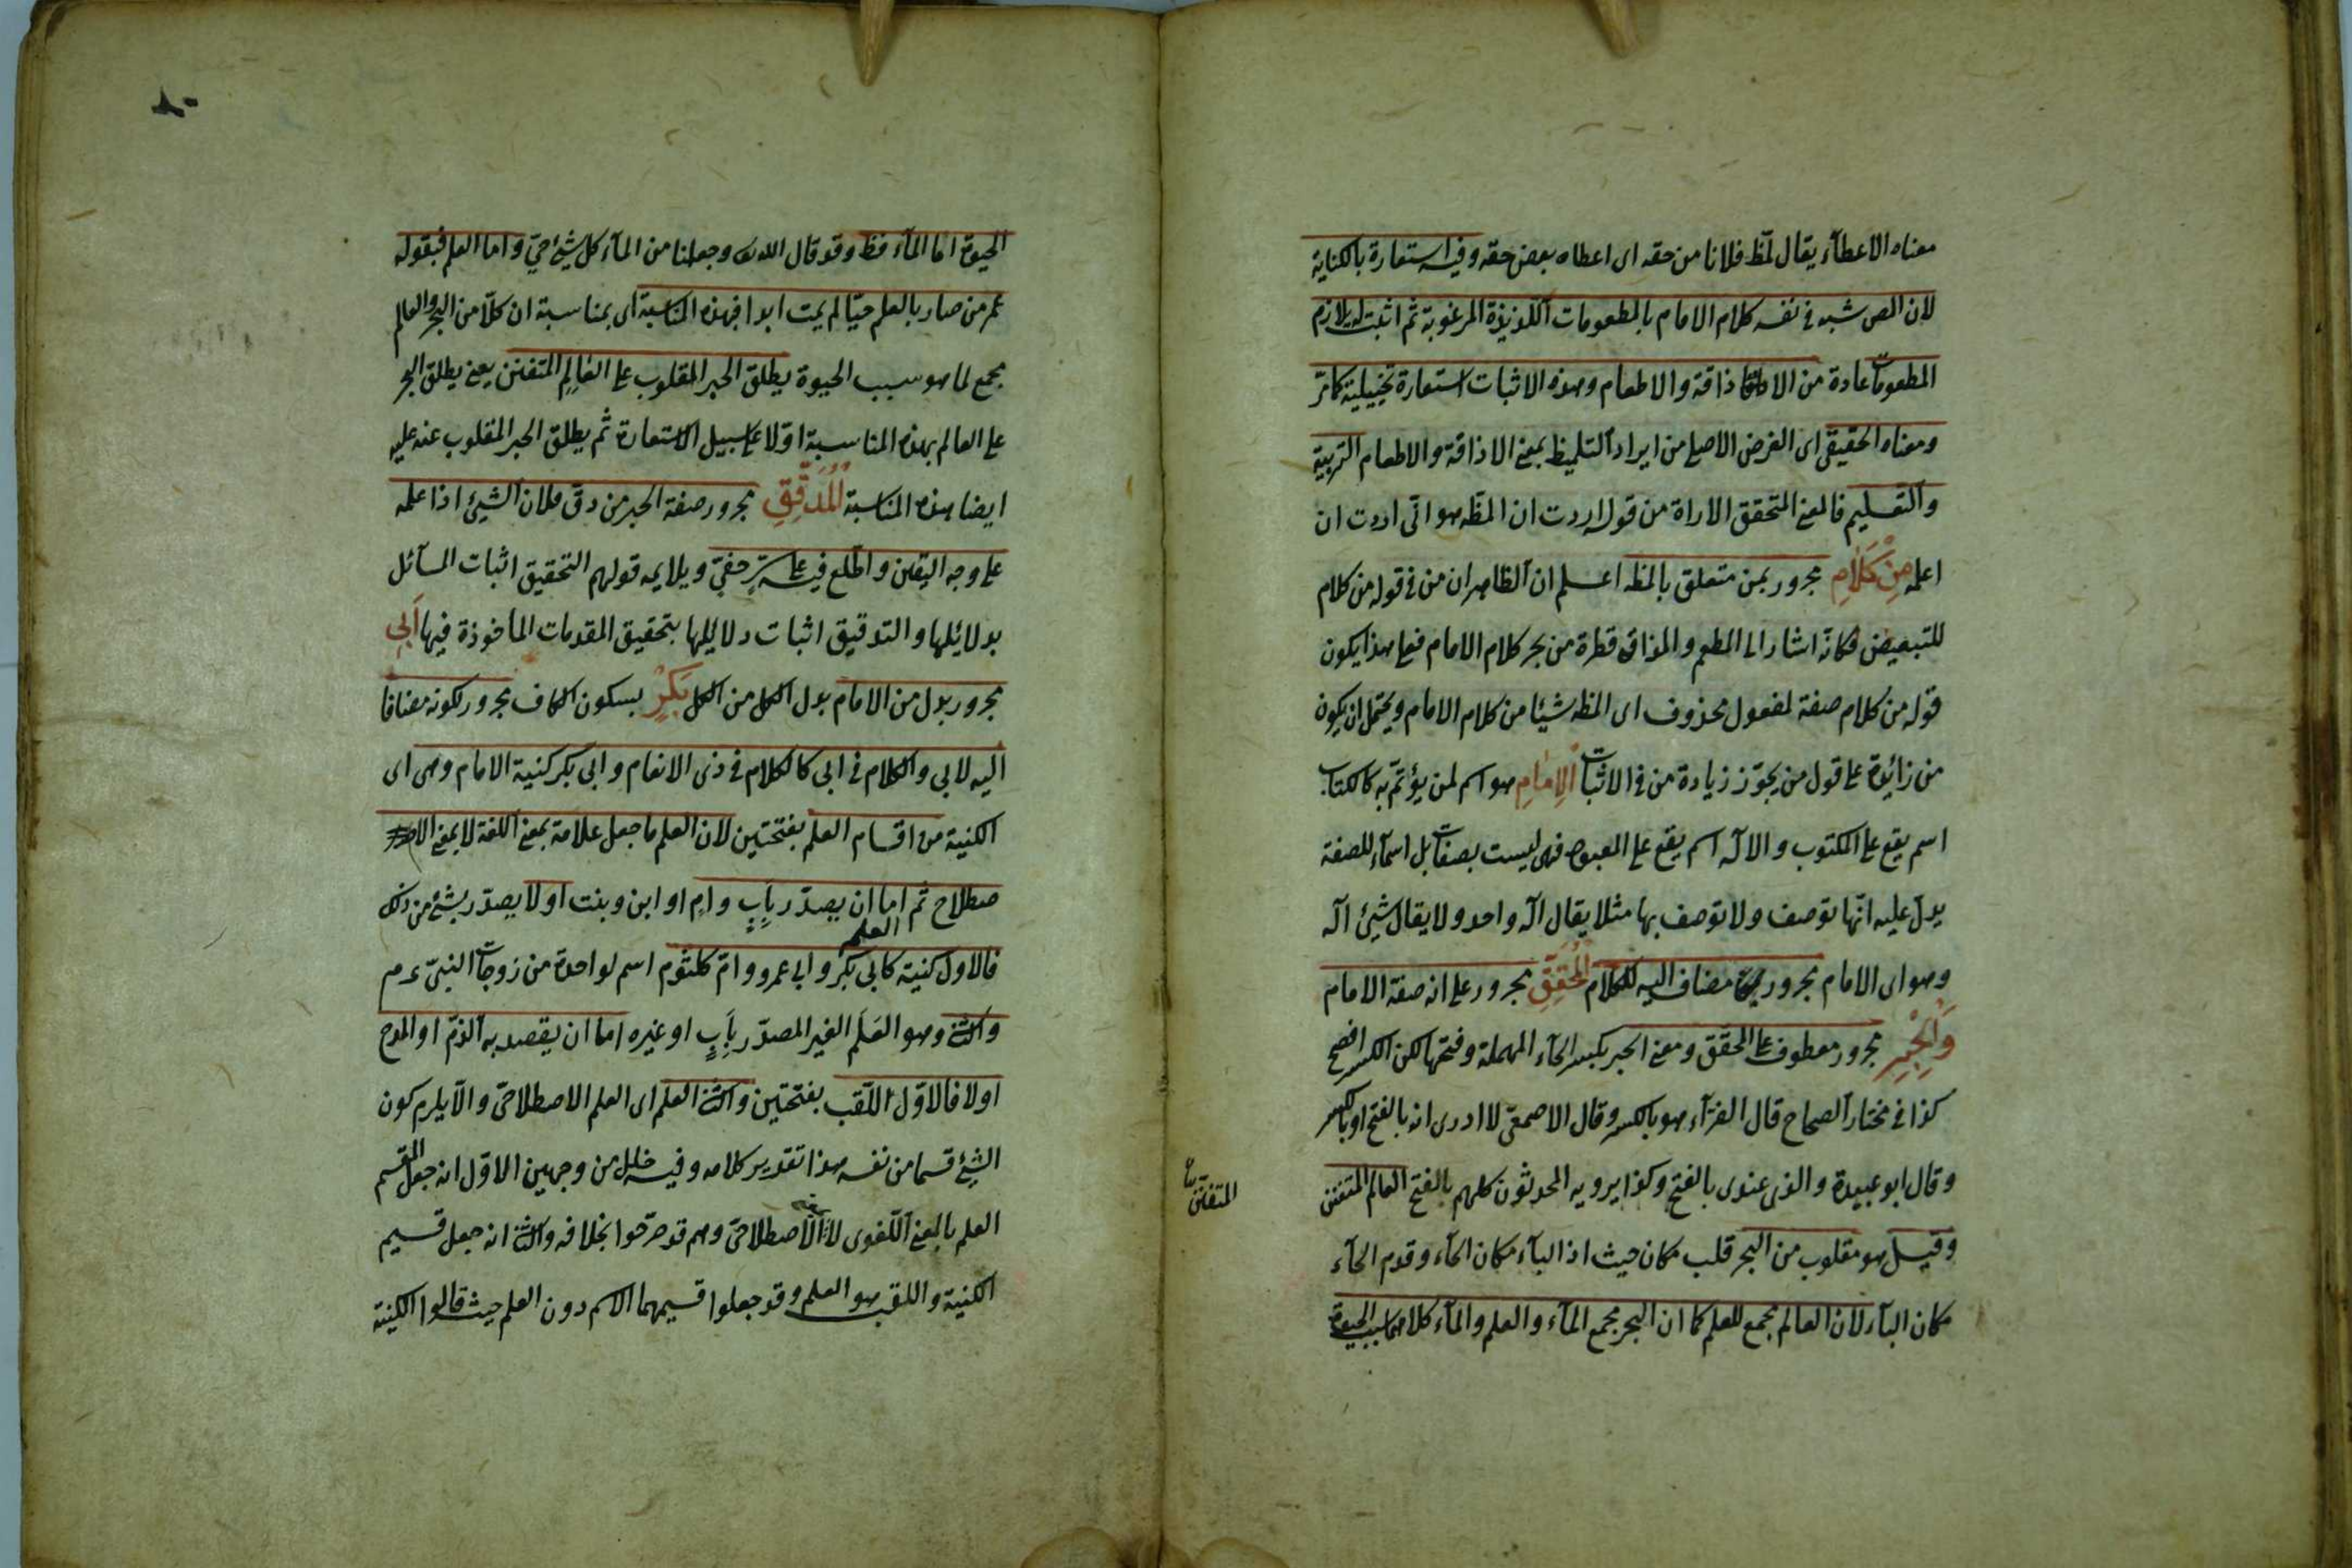 معناه الاعطاء يقال لمّظ فلانا من حقه اى اعطاه بعض حقه وفيه استعارة بالكناية
لان المص شبه فى نفسه كلام الامام بالمطعومات اللذيذة المرغوبة ثم اثبت له لازم
المطعومات عادة من الاذاقة والاطعام وهذه الاثبات استعارة تخييلية كما مرّ
ومعناه الحقيقى اى الغرض الاصلى من ايراد التلميظ بمعنى الاذاقة والاطعام التربية
والتعليم فالمعنى المتحقق الاراة من قوله اردت ان المظه هو انى اردت ان
اعلمه مِنْ كَلَامِ مجرور بمن متعلق بالمظه اعلم ان الظاهر ان من فى قوله من كلام
للتبعيض فكانّه اشار الى المطعم والمذاق قطرة من بحر كلام الامام فعلى هذا يكون
قوله من كلام صفة لمفعول محذوف اى المظه شيئا من كلام الامام ويحتمل ان يكون
من زائدة على قول من يجوّز زيادة من فى الاثبات الْاِمَامِ هو اسم لمن يؤتمّ به كالكتاب
اسم يقع على المكتوب والاله اسم يقع على المعبود فهى ليست بصفات بل اسماء للصفة
يدلّ عليه انّها توصف ولا توصف بها مثلا يقال اله واحد ولا يقال شيئ اله
وهو اى الامام مجرور مضاف اليه للكلام الْمُحَقِّقِ مجرور على انه صفة الامام
وَالْحِبْرِ مجرور معطوف على المحقق ومعنى الحبر بكسر الحاء المهملة وفتحها لكن الكسر افصح
كذا فى مختار الصحاح قال الفرّاء هو بالكسر وقال الاصمعىّ لا ادرى انه بالفتح او بالكسر
وقال ابو عبيدة والذى عندى بالفتح وكذا يرويه المحدثون كلهم بالفتح العالم المتفنن
المتفنّن
وقيل هو مقلوب من البحر قلب مكان حيث اذ الباء مكان الحاء وقدم الحاء
مكان الباء لان العالم مجمع للعلم كما ان البحر مجمع الماء والعلم والماء كلاهما سبب الحيوة
الحيوة اما الماء فظ وقد قال الله تعالى وجعلنا من الماء كل شيئ حىّ واما العلم فبقوله
عم من صار بالعلم حيّا لم يمت ابدا فبهذه المناسبة اى بمناسبة ان كلّا من البحر والعالم
مجمع لما هو سبب الحيوة يطلق الحبر المقلوب على العالِمِ المتفنن يعنى يطلق البحر
على العالم بهذه المناسبة اوّلا على سبيل الاستعارة ثم يطلق الحبر المقلوب عنه عليه
ايضا بهذه المناسبة الْمُدَقِّقِ مجرور صفة الحبر من دقّ فلان الشيئ اذا علمه
على وجه اليقين واطّلع فيه على سرّ خفىّ ويلايمه قولهم التحقيق اثبات المسآئل
بدلائلها والتدقيق اثبات دلايلها بتحقيق المقدمات المأخوذة فيها اَبِى
مجرور بدل من الامام بدل الكل من الكل بَكْرٍ بسكون الكاف مجرور لكونه مضافا
اليه لابى والكلام فى ابى كالكلام فى ذى الانعام وابى بكر كنية الامام وهى اى
الكنية من اقسام العلم بفتحتين لان العلم ما جعل علامة بمعنى اللغة لا بمعنى الا
صطلاح ثم اما ان يصدّر بِأبٍ وامٍ او ابن وبنت اولا يصدّر بشئ من ذلك
العلم
فالاول كنية كابى بكر وابى عمرو وامّ كلثوم اسم لواحدة من زوجات النبىّ عم
والثانى وهو العَلَم الغير المصدّر بِأَبٍ او غيره اما ان يقصد به الذمّ او المدح
اولا فالاوّل اللّقب بفتحتين والثانى العلم اى العلم الاصطلاحىّ والّا يلزم كون
الشئ قسما من نفسه هذا تقدير كلامه وفيه خلل من وجهين الاوّل انه جعل المقسم
العلم بالمعنى اللّغوى لا الاصطلاحىّ وهم قد صرّحوا بخلافه والثانى انه جعل قسيم
الكنية واللقب هو العلم وقد جعلوا قسيمهما الاسم دون العلم حيث قالوا الكنية